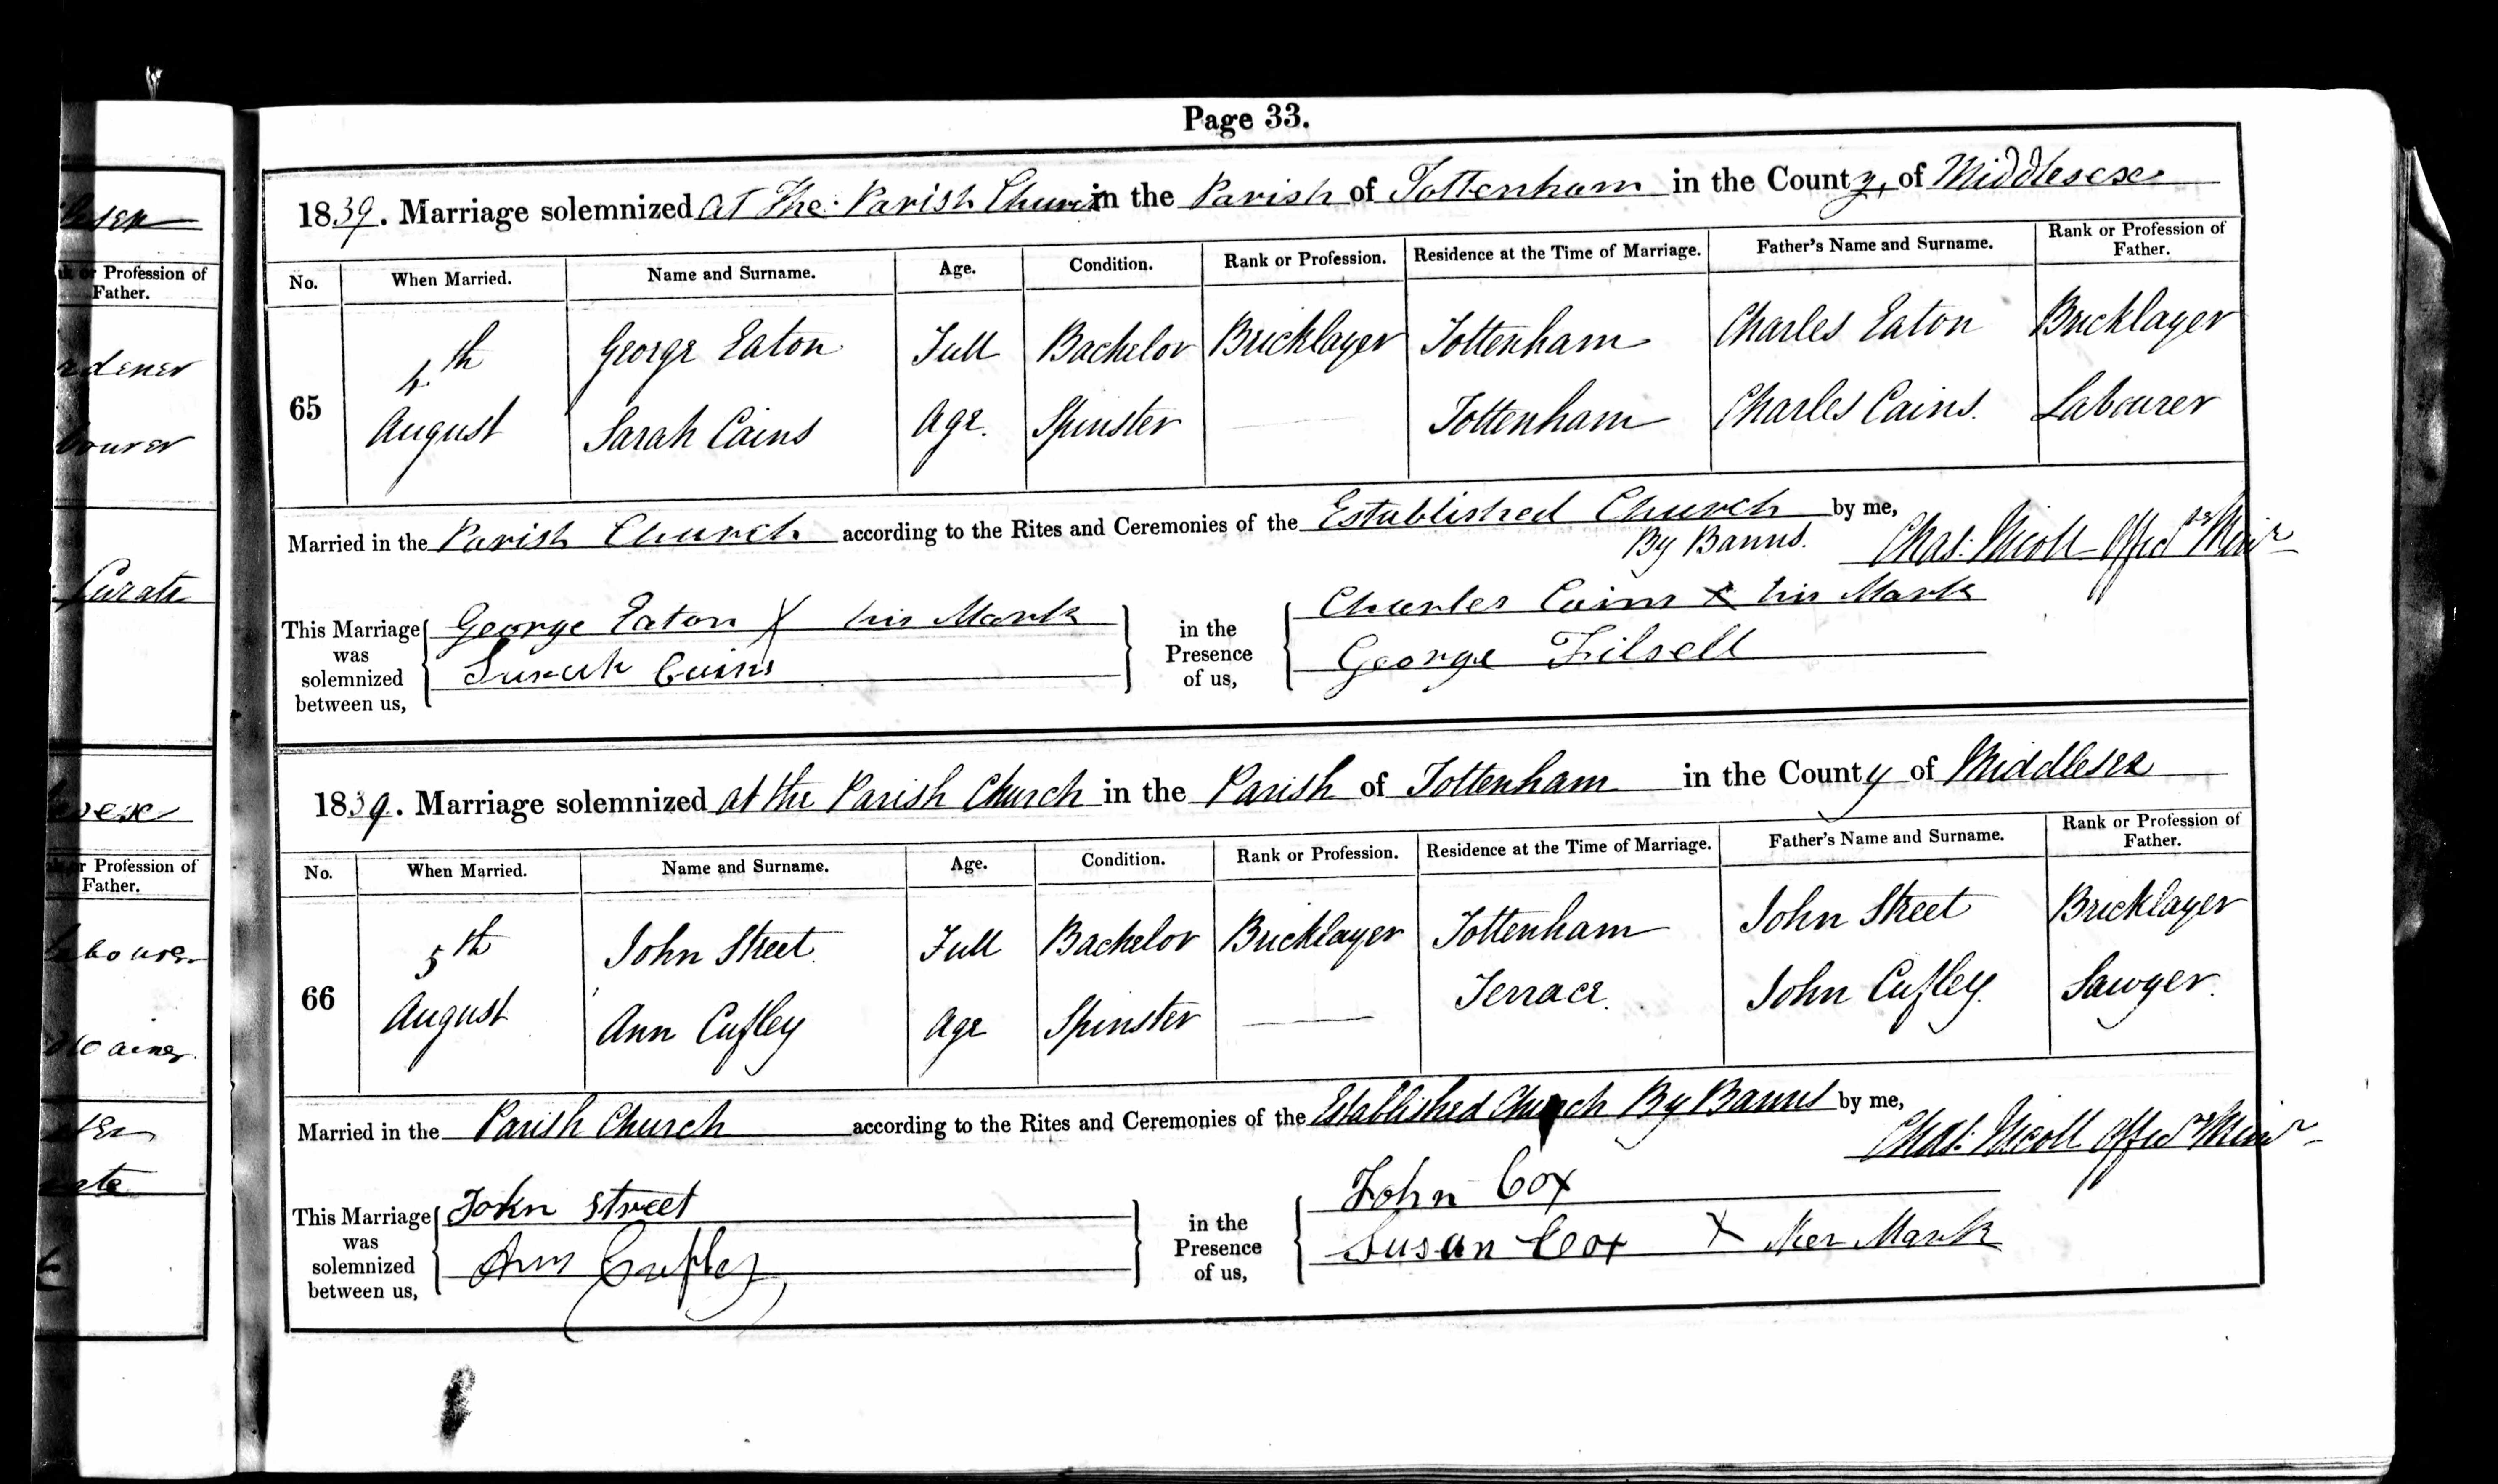 Page 33.
1839. Marriage solemnized at The Parish Church in the Parish of Tottenham in the County, of Middlesex
No. When Married. Name and Surname. Age. Condition. Rank or Profession. Residence at the Time of Marriage. Father's Name and Surname. Rank or Profession of Father.
65 4th George Eaton Full Bachelor Bricklayer Tottenham Charles Eaton Bricklayer
August Sarah Cains Age. Spinster Tottenham Charles Cains. Labourer
Married in the Parish Church according to the Rites and Ceremonies of the Established Church by me,
By Banns. Chas: Nicoll Offic
This Marriage was solemnized between us, George Eaton X his Mark in the Presence of us, Charles Cains X his Mark
Sarah Cains George Filsell
1839. Marriage solemnized at the Parish Church in the Parish of Tottenham in the County of Middlesex
No. When Married. Name and Surname. Age. Condition. Rank or Profession. Residence at the Time of Marriage. Father's Name and Surname. Rank or Profession of Father.
66 5th John Street Full Bachelor Bricklayer Tottenham John Street Bricklayer
August Ann Cufley Age Spinster Terrace. John Cufley. Sawyer.
Married in the Parish Church according to the Rites and Ceremonies of the Established Church By Banns by me,
Chas: Nicoll
This Marriage was solemnized between us, John Street in the Presence of us, John Cox
Ann Cufley Susan Cox X Her Mark
or Profession of
Father.
Curate
or Profession of
Father.